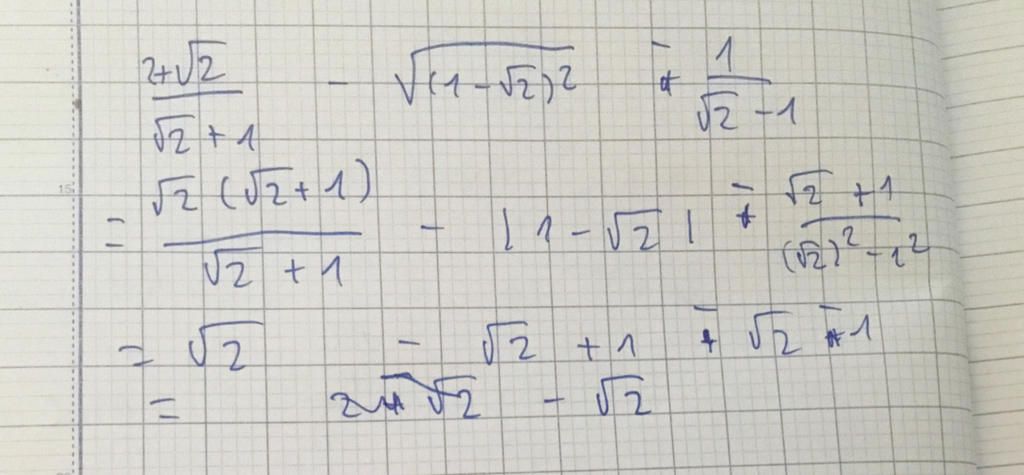 (2+√2)/(√2+1) - √((1-√2)²) - 1/(√2-1)
= √2(√2+1)/(√2+1) - |1-√2| - (√2+1)/((√2)²-1²)
= √2 - √2 + 1 - √2 - 1
= √2 - √2